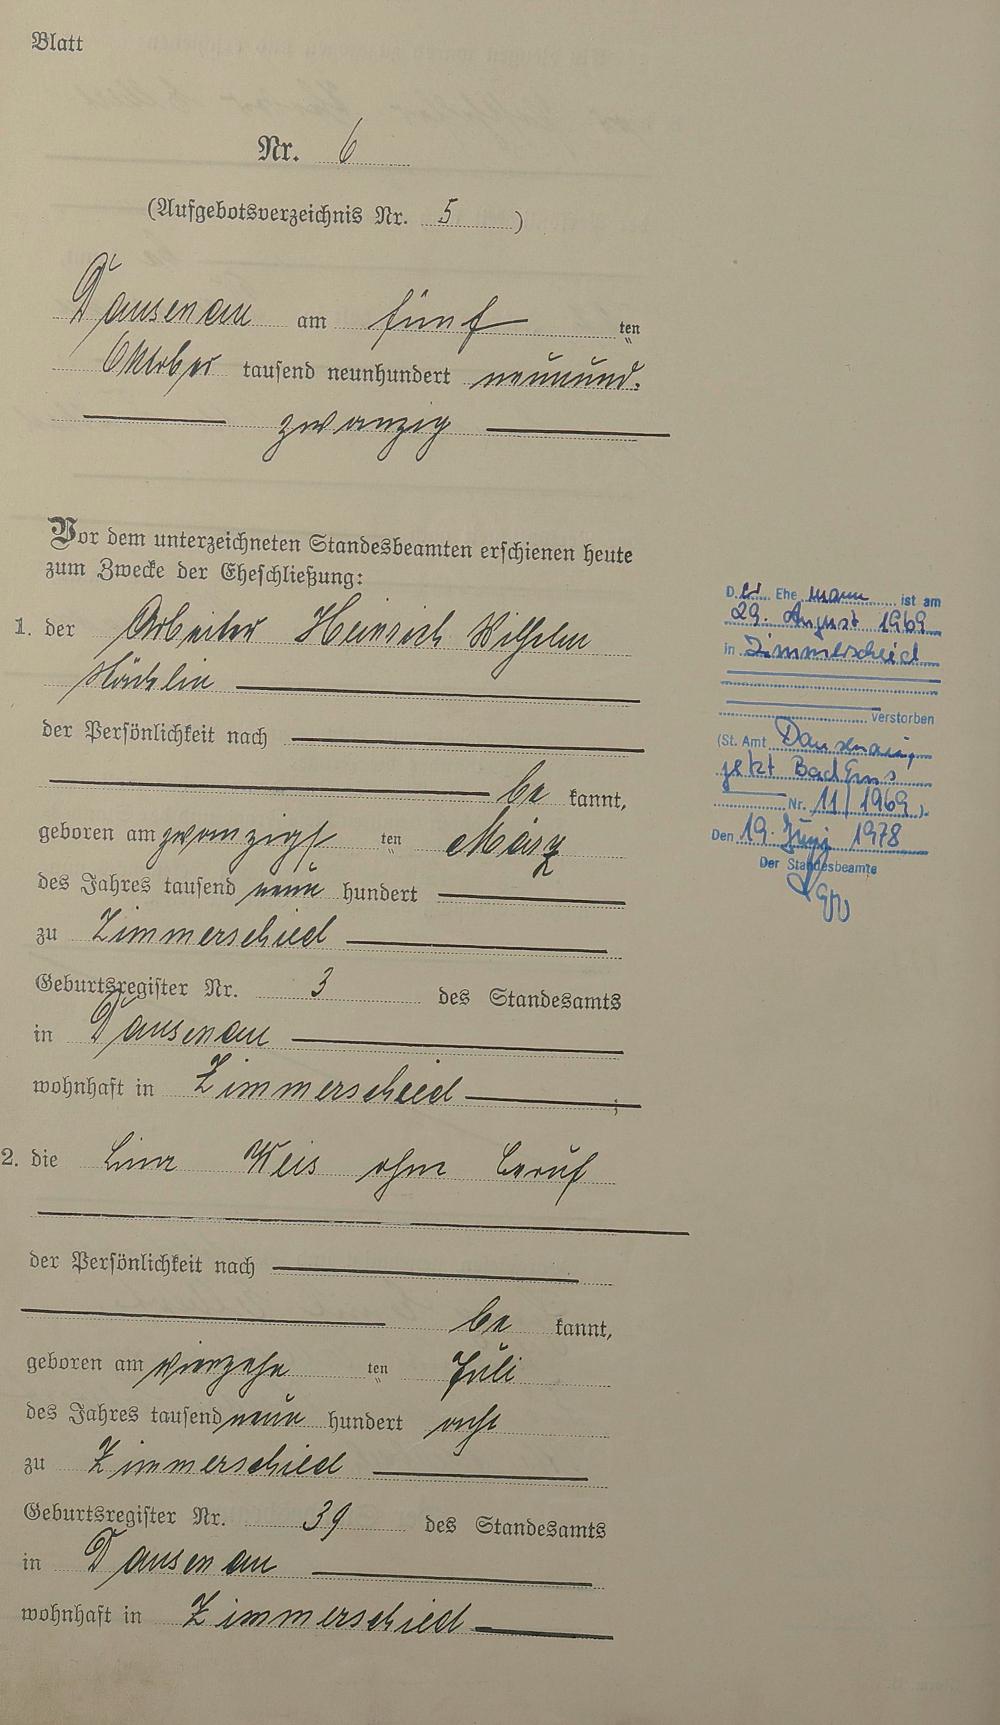 Blatt
Nr. 6
(Aufgebotsverzeichnis Nr. 5)
Dausenau am fünf ten
Oktober tausend neunhundert neunund-
zwanzig
Vor dem unterzeichneten Standesbeamten erschienen heute
zum Zwecke der Eheschließung:
1. der Arbeiter Heinrich Wilhelm
der Persönlichkeit nach
be kannt,
geboren am zwanzigst ten März
des Jahres tausend neun hundert
zu Zimmerschied
Geburtsregister Nr. 3 des Standesamts
in Dausenau
wohnhaft in Zimmerschied;
2. die Lina Weis ohne Beruf
der Persönlichkeit nach
be kannt,
geboren am vierzehn ten Juli
des Jahres tausend neun hundert acht
zu Zimmerschied
Geburtsregister Nr. 39 des Standesamts
in Dausenau
wohnhaft in Zimmerschied
Der Ehemann ist am
29. August 1969
in Zimmerscheid
verstorben
(St. Amt Dausenau,
jetzt Bad Ems
Nr. 11/1969).
Den 19. Juni 1978
Der Standesbeamte